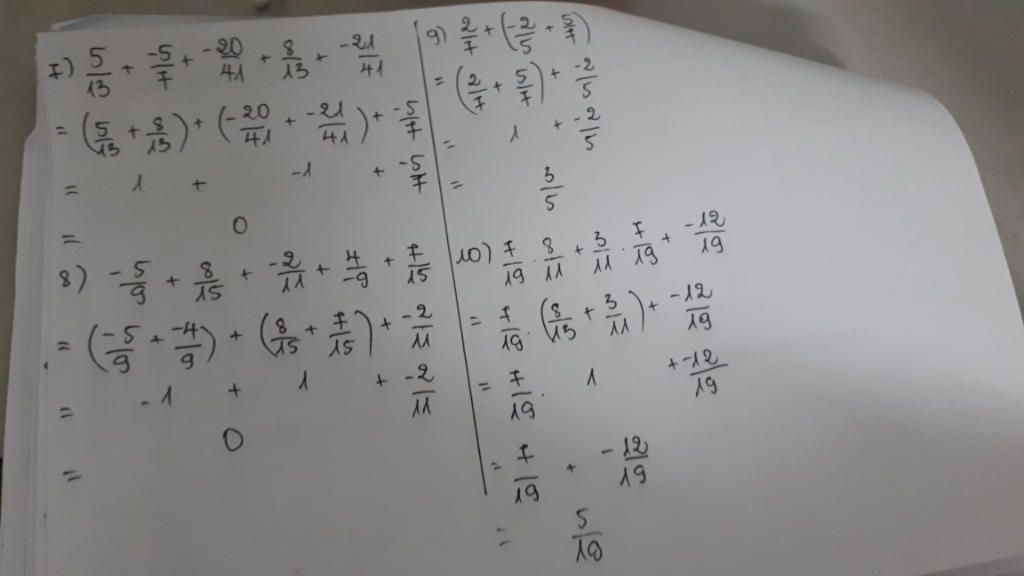 7) 5/13 + -5/7 + -20/41 + 8/13 + -21/41
= (5/13 + 8/13) + (-20/41 + -21/41) + -5/7
= 1 + -1 + -5/7
= 0
8) -5/9 + 8/15 + -2/11 + 4/-9 + 7/15
= (-5/9 + -4/9) + (8/15 + 7/15) + -2/11
= -1 + 1 + -2/11
= 0
9) 2/7 + (-2/5 + 5/7)
= (2/7 + 5/7) + -2/5
= 1 + -2/5
= 3/5
10) 7/19 . 8/11 + 3/11 . 7/19 + -12/19
= 7/19 . (8/13 + 3/11) + -12/19
= 7/19 . 1 + -12/19
= 7/19 + -12/19
= 5/19